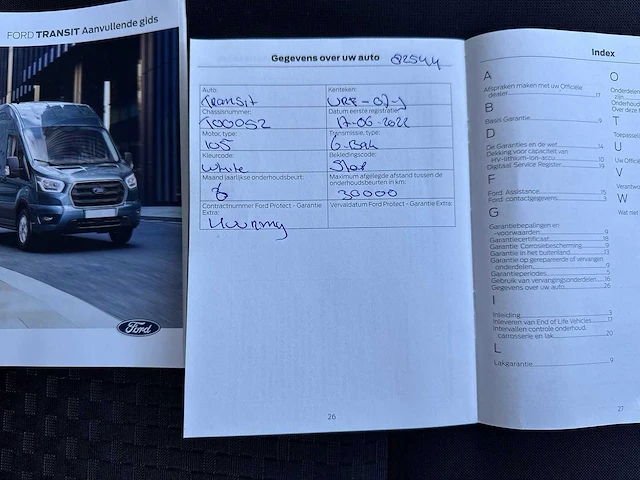 FORD TRANSIT Aanvullende gids
Ford
Gegevens over uw auto 82544
Auto: Kenteken:
Transit
Chassisnummer: Datum eerste registratie:
T00052 17-06-2022
Motor, type: Transmissie, type:
105 6-Bak
Kleurcode: Bekledingscode:
White Stof
Maand jaarlijkse onderhoudsbeurt: Maximum afgelegde afstand tussen de onderhoudsbeurten in km:
6 30000
Contractnummer Ford Protect - Garantie Extra: Vervaldatum Ford Protect - Garantie Extra:
26
Index
A
Afspraken maken met uw Officiële dealer 17
B
Basis Garantie 9
D
De Garanties en de wet 14
Dekking voor capaciteit van HV-lithium-ion-accu 10
Digitaal Service Register 19
F
Ford Assistance 15
Ford contactgegevens 3
G
Garantiebepalingen en -voorwaarden 9
Garantiecertificaat 18
Garantie Corrosiebescherming 9
Garantie in het buitenland 13
Garantie op gerepareerde of vervangen onderdelen 9
Garantieperiodes 5
Gebruik van vervangingsonderdelen 16
Gegevens over uw auto 26
I
Inleiding 3
Inleveren van End of Life Vehicles 17
Intervallen controle onderhoud, carrosserie en lak 20
L
Lakgarantie 9
O
Onderdelen
zijn
Onderhoud
Over deze
T
Toepassel
U
Uw Offici
V
Verantwo
W
Wat niet
27